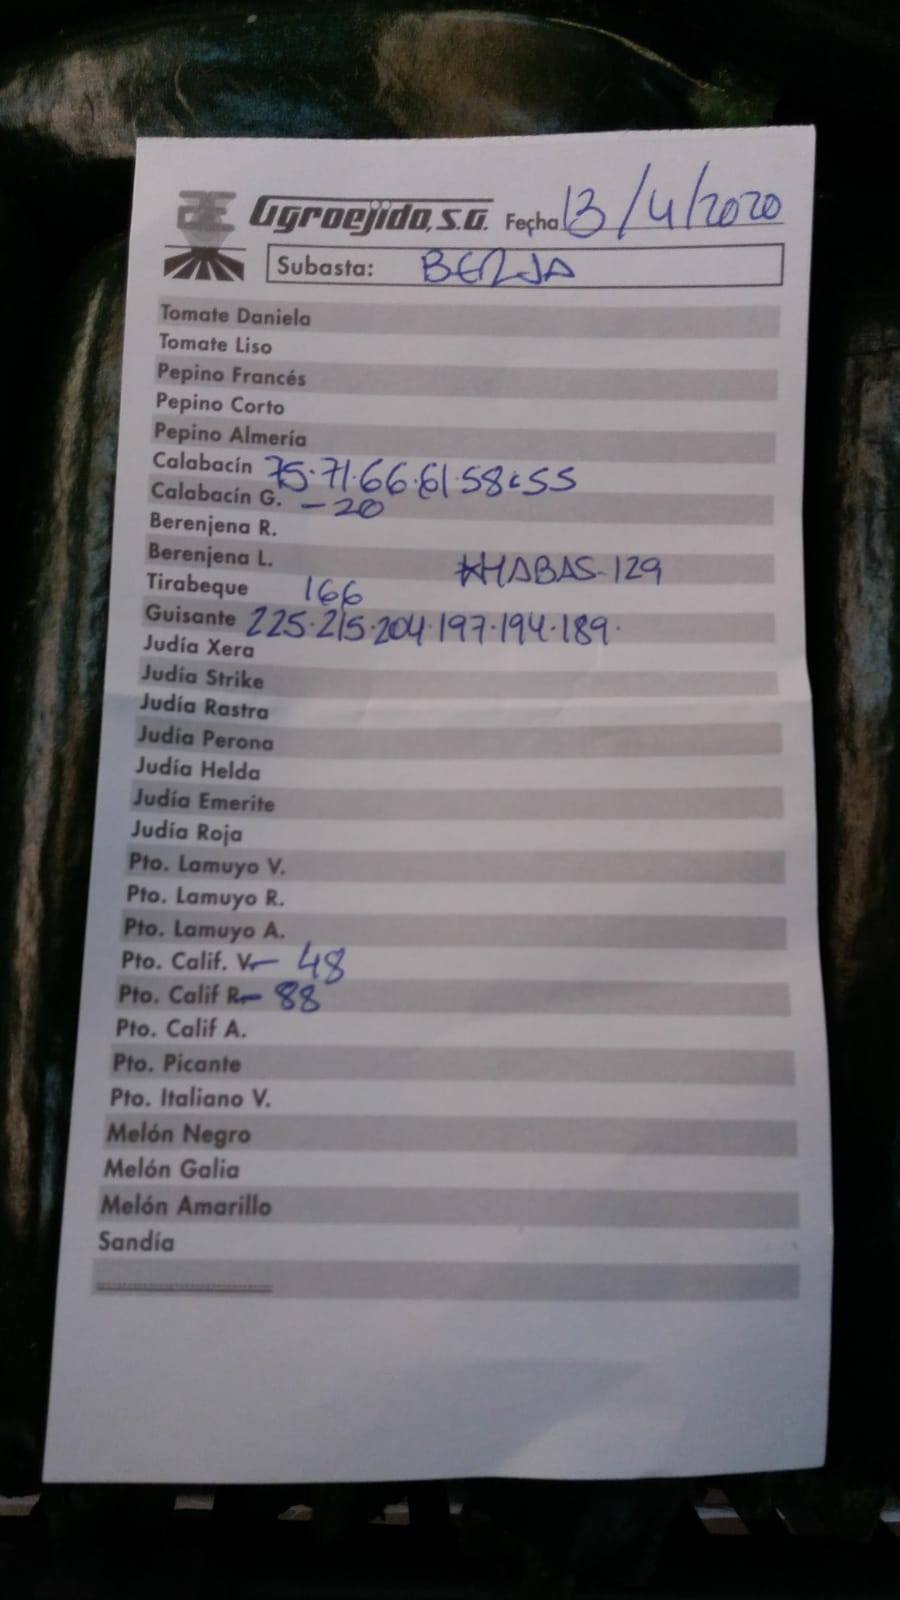 Agroejido, S.A. Fecha 13/4/2020
Subasta: BERJA
Tomate Daniela
Tomate Liso
Pepino Francés
Pepino Corto
Pepino Almería
Calabacín 75.71.66.61.58.55
Calabacín G. - 20
Berenjena R.
Berenjena L. *HABAS-129
Tirabeque 166
Guisante 225.215.204.197.194.189.
Judía Xera
Judía Strike
Judía Rastra
Judía Perona
Judía Helda
Judía Emerite
Judía Roja
Pto. Lamuyo V.
Pto. Lamuyo R.
Pto. Lamuyo A.
Pto. Calif. V. - 48
Pto. Calif R. - 88
Pto. Calif A.
Pto. Picante
Pto. Italiano V.
Melón Negro
Melón Galia
Melón Amarillo
Sandía